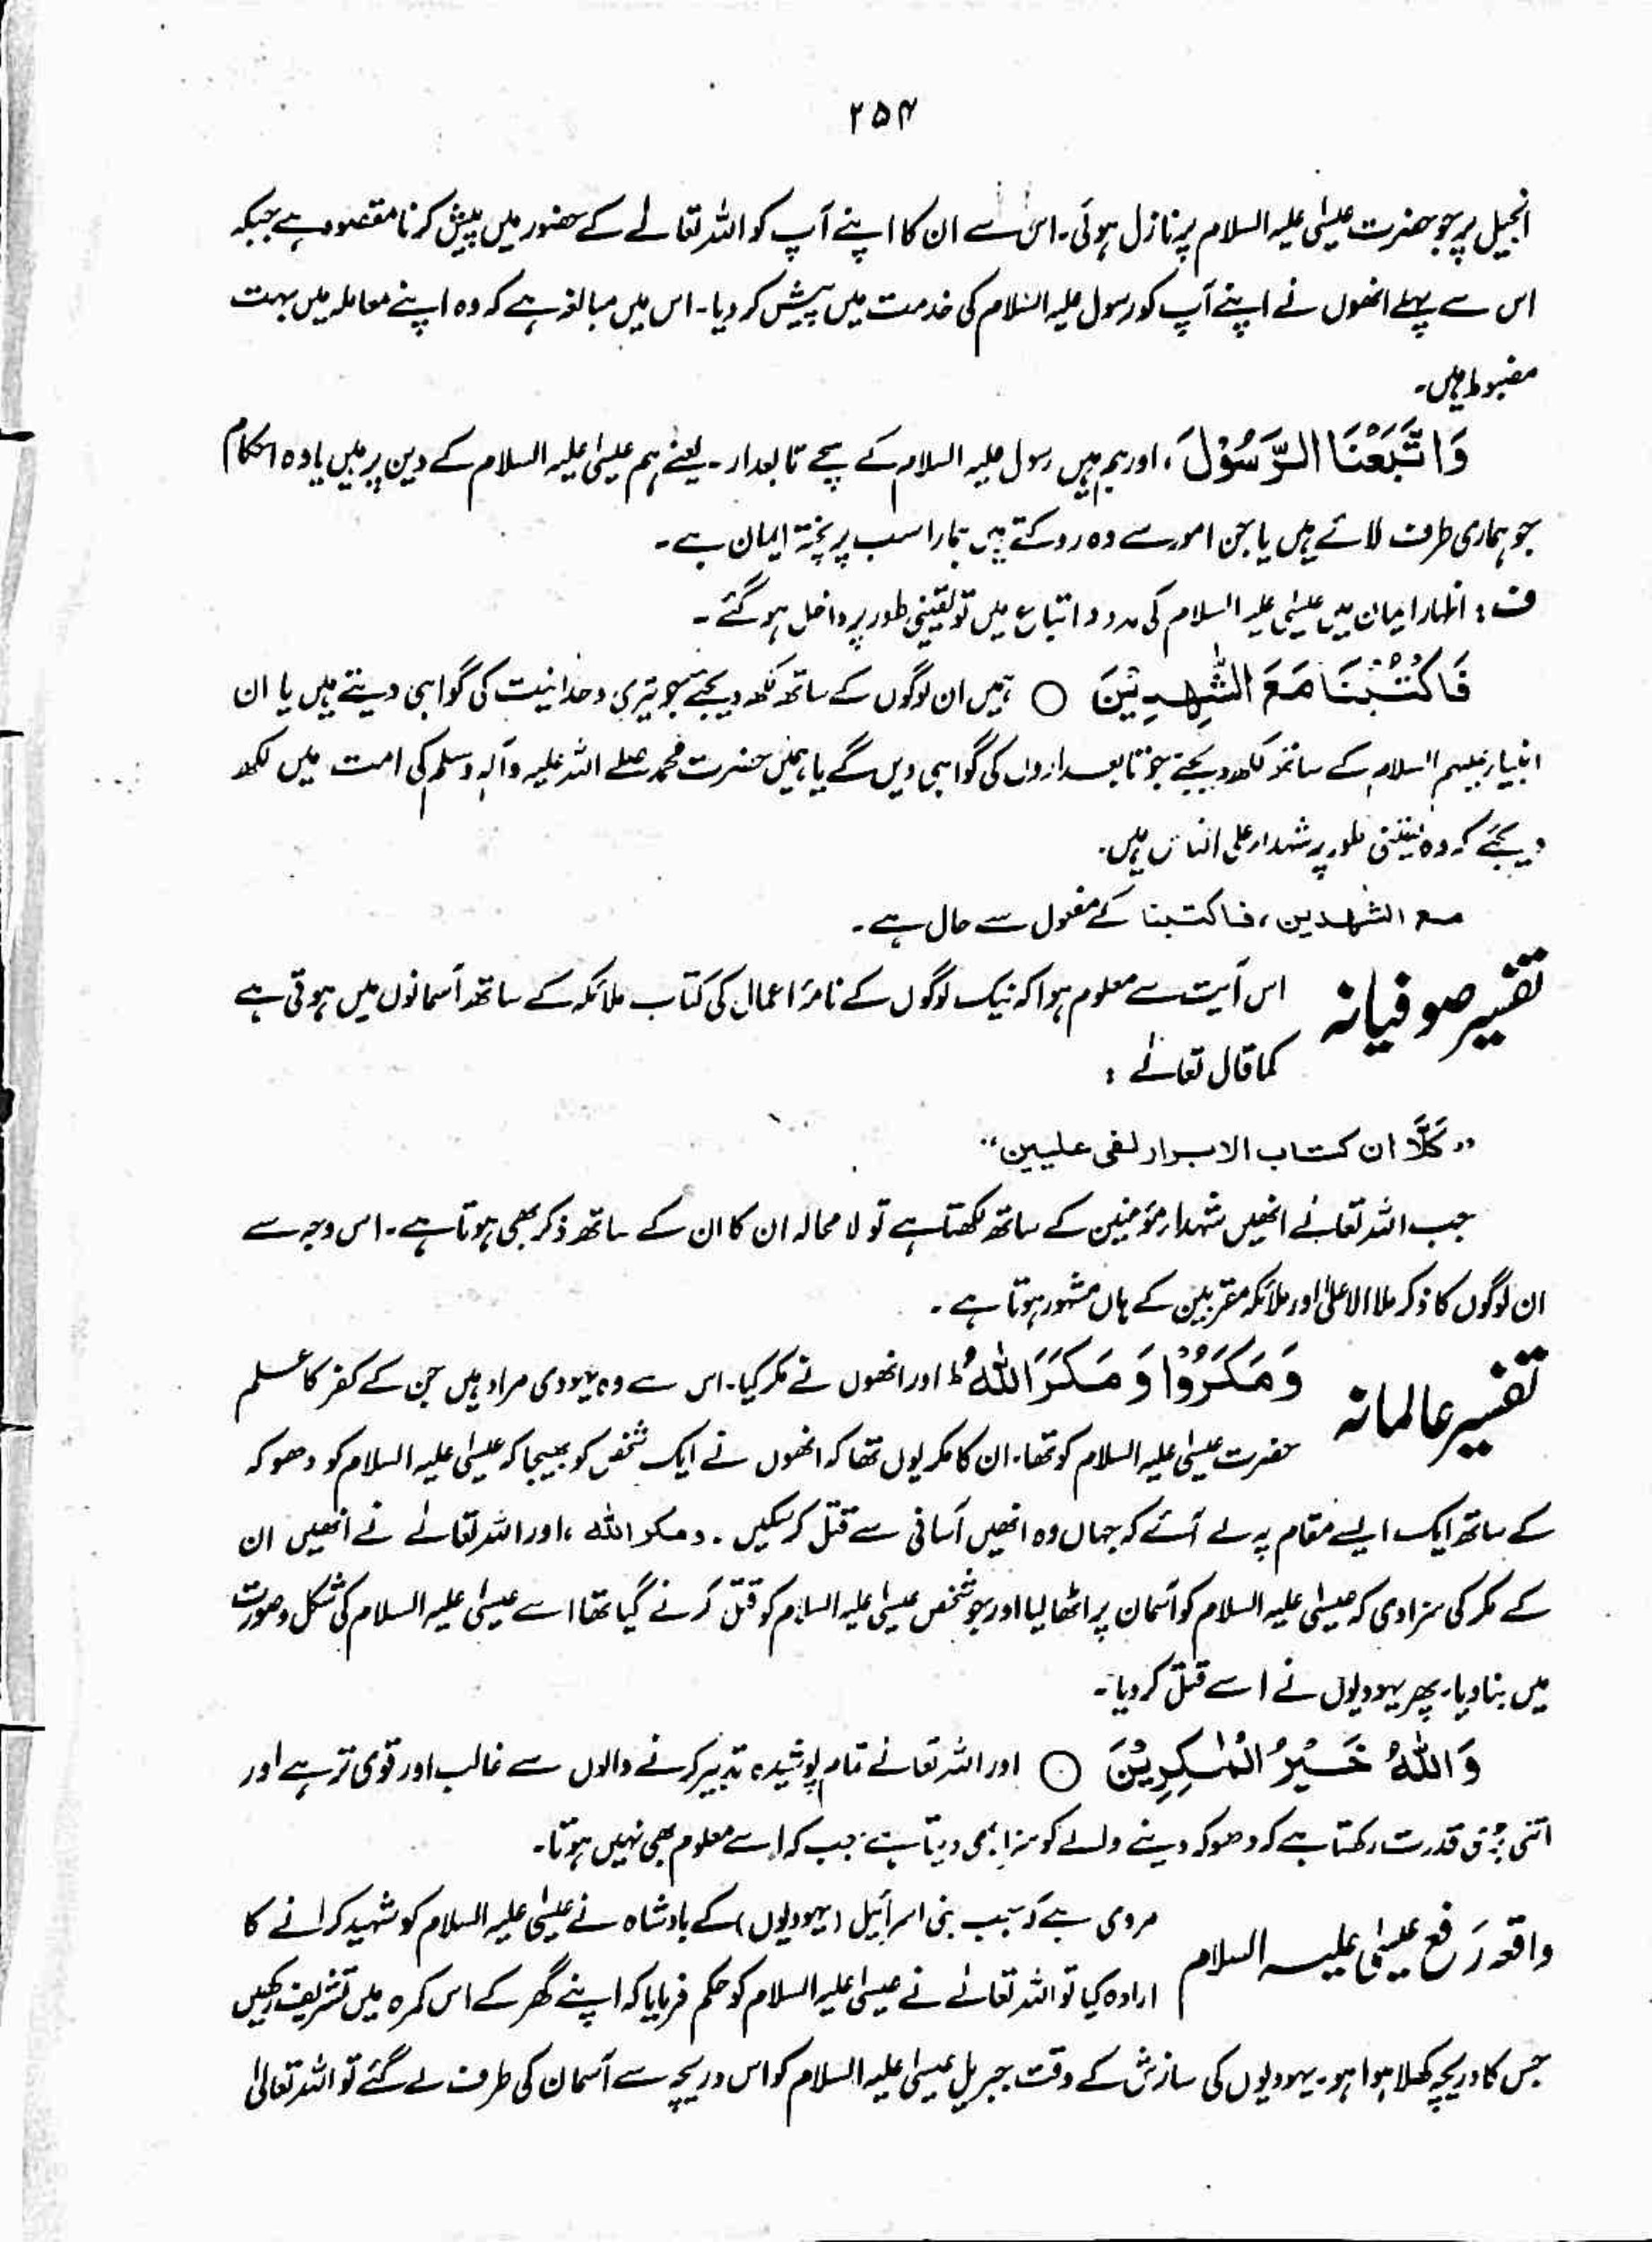 ۲۵۴
انجیل پر جو حضرت عیسٰی علیہ السلام پر نازل ہوئی۔ اس سے ان کا اپنے آپ کو اللہ تعالےٰ کے حضور میں پیش کرنا مقصود ہے جبکہ
اس سے پہلے انھوں نے اپنے آپ کو رسول علیہ السلام کی خدمت میں پیش کر دیا۔ اس میں مبالغہ ہے کہ وہ اپنے معاملہ میں بہت
مضبوط ہیں۔
وَاتَّبَعْنَا الرَّسُوْلَ، اور ہم ہیں رسول علیہ السلام کے سچے تابعدار۔ یعنے ہم عیسٰی علیہ السلام کے دین پر ہیں یا وہ احکام
جو ہماری طرف لائے ہیں یا جن امور سے وہ روکتے ہیں ہمارا سب پر پختہ ایمان ہے۔
ف: اظہار ایمان میں عیسٰی علیہ السلام کی مدد و اتباع میں تو یقینی طور پر داخل ہو گئے۔
فَاكْتُبْنَا مَعَ الشّٰهِدِيْنَ ○ ہمیں ان لوگوں کے ساتھ لکھ دیجئے جو تیری وحدانیت کی گواہی دیتے ہیں یا ان
انبیاء علیہم السلام کے ساتھ لکھ دیجئے جو تابعداروں کی گواہی دیں گے یا ہمیں حضرت محمد صلے اللہ علیہ وآلہ وسلم کی امت میں لکھ
دیجئے کہ وہ یقینی طور پر شہداء علی الناس ہیں۔
مع الشٰهدین، فاکتبنا کے مفعول سے حال ہے۔
تفسیر صوفیانہ اس آیت سے معلوم ہوا کہ نیک لوگوں کے نامۂ اعمال کی کتاب ملائکہ کے ساتھ آسمانوں میں ہوتی ہے
کما قال تعالےٰ :
"کَلَّا ان کتاب الابرار لفی علیین"
جب اللہ تعالےٰ انھیں شہداء مؤمنین کے ساتھ لکھتا ہے تو لامحالہ ان کا ان کے ساتھ ذکر بھی ہوتا ہے۔ اس وجہ سے
ان لوگوں کا ذکر ملا الاعلیٰ اور ملائکہ مقربین کے ہاں مشہور ہوتا ہے۔
تفسیر عالمانہ وَمَكَرُوْا وَمَكَرَ اللّٰهُ ط اور انھوں نے مکر کیا۔ اس سے وہ یہودی مراد ہیں جن کے کفر کا علم
حضرت عیسٰی علیہ السلام کو تھا۔ ان کا مکر یوں تھا کہ انھوں نے ایک شخص کو بھیجا کہ عیسٰی علیہ السلام کو دھوکہ
کے ساتھ ایک ایسے مقام پہ لے آئے کہ جہاں وہ انھیں آسانی سے قتل کر سکیں۔ ومکر اللّٰه، اور اللہ تعالےٰ نے انھیں ان
کے مکر کی سزا دی کہ عیسٰی علیہ السلام کو آسمان پر اٹھا لیا اور جو شخص عیسٰی علیہ السلام کو قتل کرنے گیا تھا اسے عیسٰی علیہ السلام کی شکل و صورت
میں بنا دیا۔ پھر یہودیوں نے اسے قتل کر دیا۔
وَاللّٰهُ خَيْرُ الْمٰكِرِيْنَ ○ اور اللہ تعالےٰ تمام پوشیدہ تدبیر کرنے والوں سے غالب اور قوی تر ہے اور
اتنی بڑی قدرت رکھتا ہے کہ دھوکہ دینے والے کو سزا بھی دیتا ہے جب کہ اسے معلوم بھی نہیں ہوتا۔
واقعہ رَفع عیسٰی علیہ السلام مروی ہے کہ جب بنی اسرائیل (یہودیوں) کے بادشاہ نے عیسٰی علیہ السلام کو شہید کرانے کا
ارادہ کیا تو اللہ تعالےٰ نے عیسٰی علیہ السلام کو حکم فرمایا کہ اپنے گھر کے اس کمرہ میں تشریف رکھیں
جس کا دریچہ کھلا ہوا ہو۔ یہودیوں کی سازش کے وقت جبریل عیسٰی علیہ السلام کو اس دریچہ سے آسمان کی طرف لے گئے تو اللہ تعالیٰ